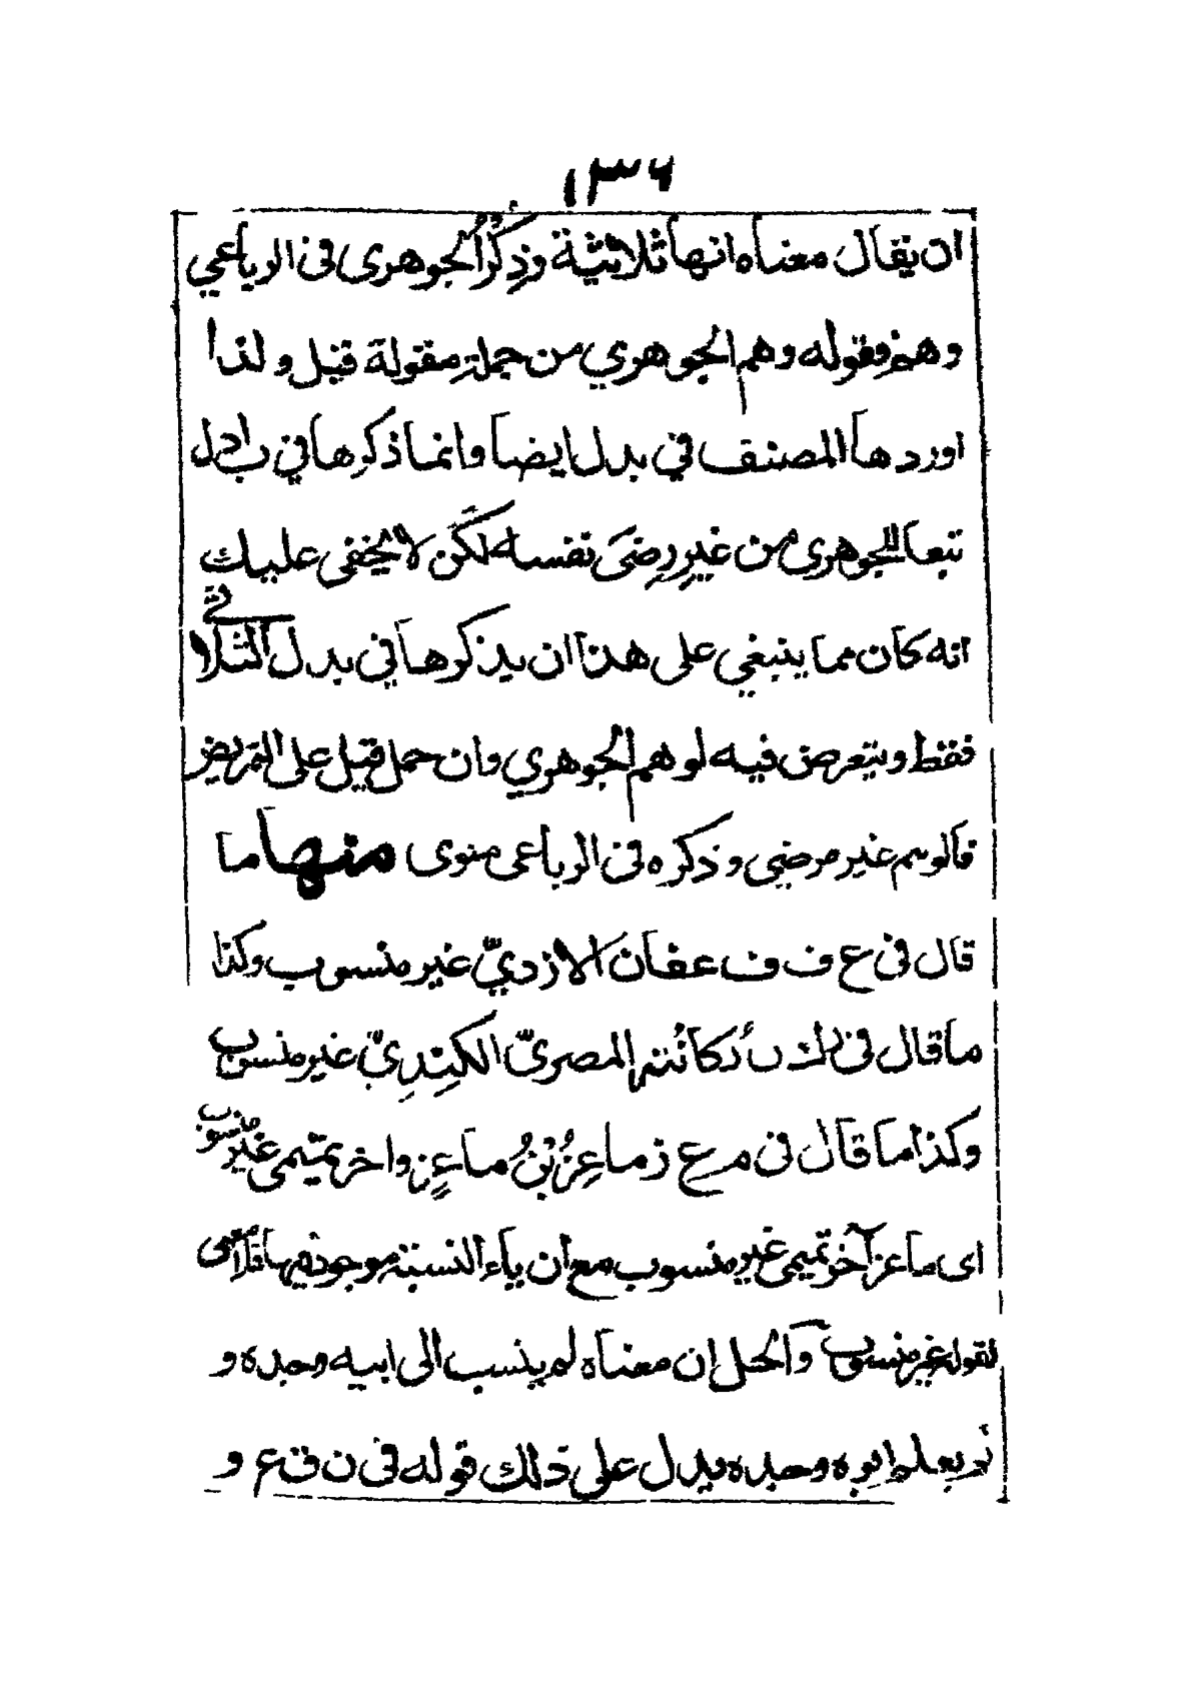 ١٣٦
ان يقال معناه انها ثلاثية وذِكْرُ الجوهرى فى الرباعي
وهم وقوله وهم الجوهري من جملة مقولة قيل ولذا
اوردها المصنف في بدل ايضا وانما ذكرها في ب ا دل
تبعا للجوهرى من غير رضىً نفسه لكن لا يخفى عليك
انه كان مما ينبغي على هذا ان يذكرها في بدل الثلاثي
فقط ويتعرض فيه لوهم الجوهري وان حمل قيل على التمريض
فالوهم غير مرضي وذكره فى الرباعى منوى منها ما
قال فى ع ف ف عفان الازديّ غير منسوب وكذا
ما قال فى ك ب د المصرىّ الكندِيّ غير منسوب
وكذا ما قال فى م ع ز ماعِزُ بْنُ ماعِزٍ واخر تميمى غير منسوب
اى ماعز آخر تميمى غير منسوب مع ان ياء النسبة موجودة فيها فلا معنى
لقوله غير منسوب والحل ان معناه لم ينسب الى ابيه وجده و
لم يعلم ابوه وجده يدل على ذلك قوله فى ن ق ع و